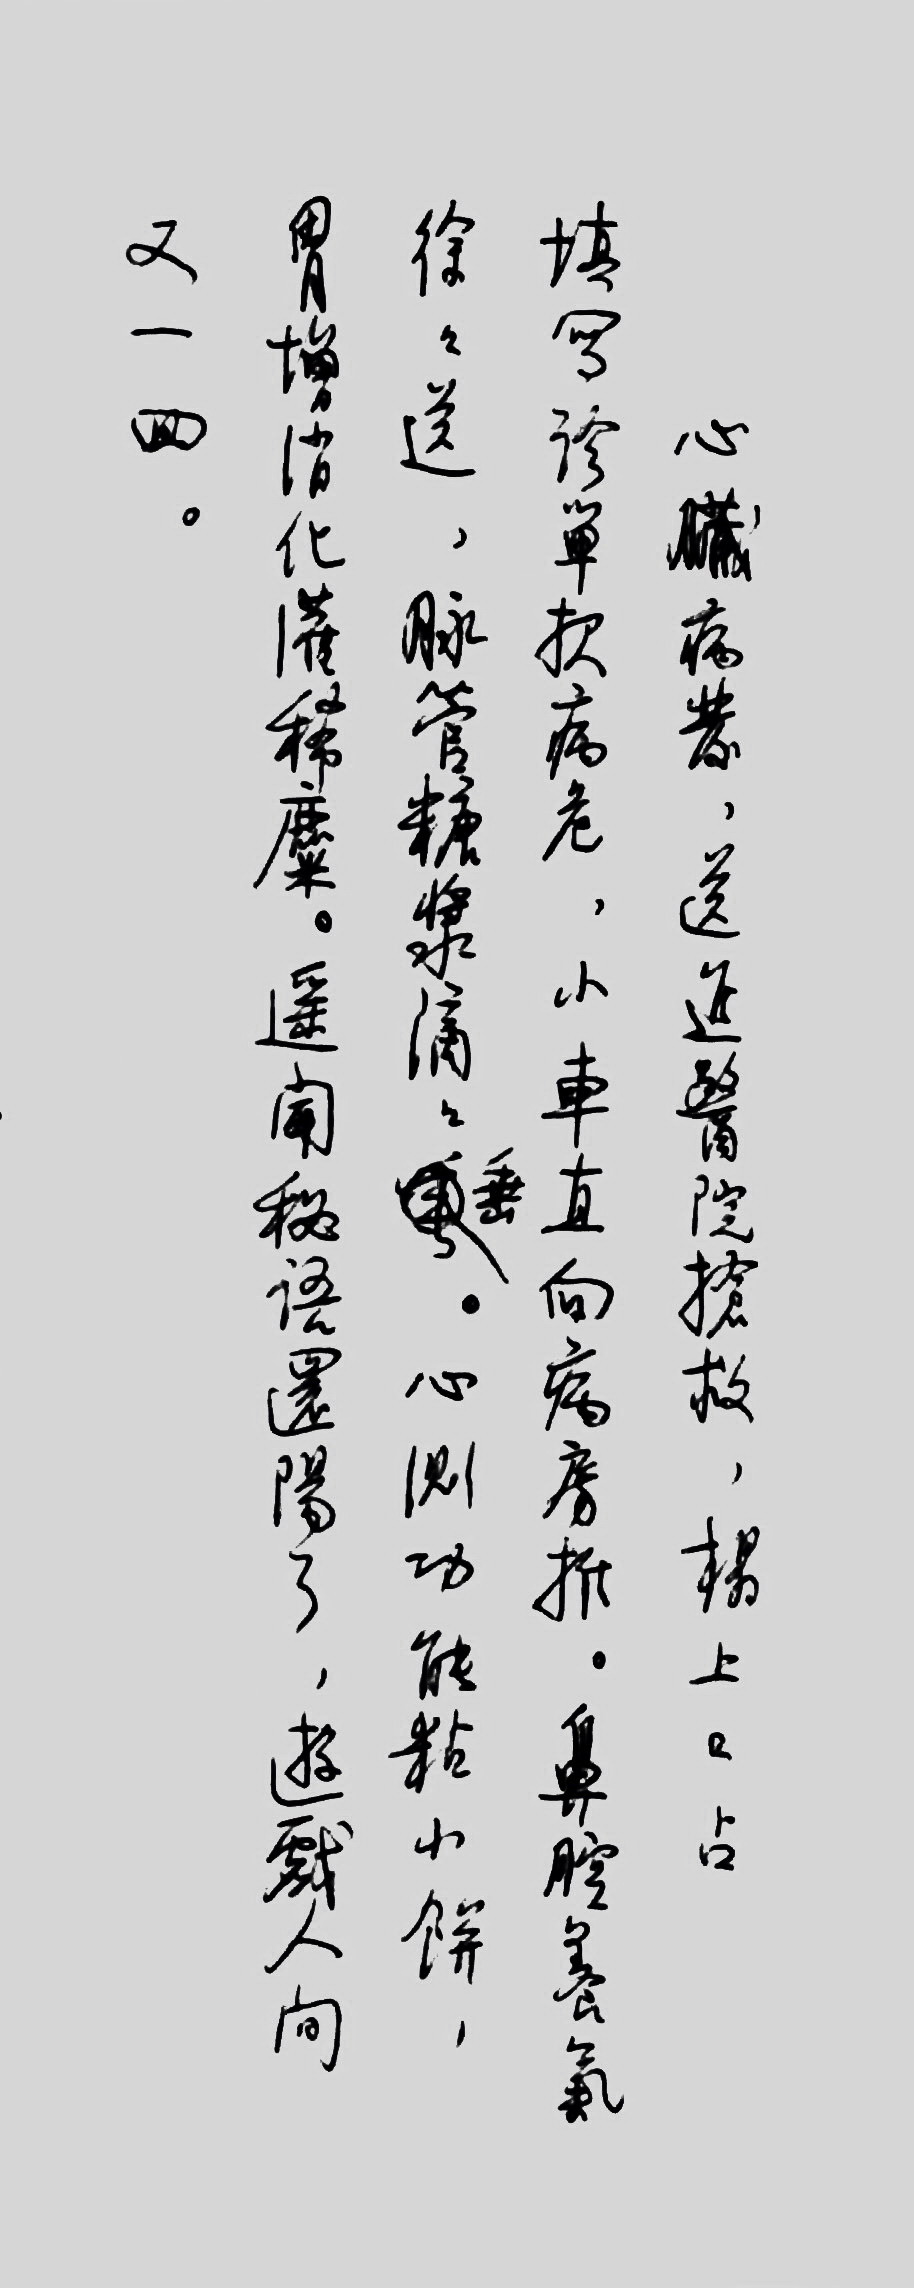 心臟病發，送進醫院搶救，榻上口占
填寫診單报病危，小車直向病房推。鼻腔養氣
徐々送，脉管糖漿滴々垂。心測功能粘小餅，
胃增消化灌稀糜。遥聞秘語還陽了，遊戲人间
又一囬。